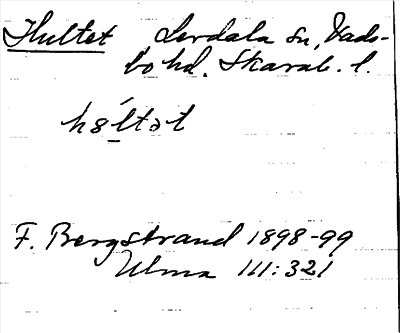 Hultet Lerdala sn, Vads-
bo hd. Skarab. l.
hɞ́ltət
F. Bergstrand 1898-99
Ulma 111:321